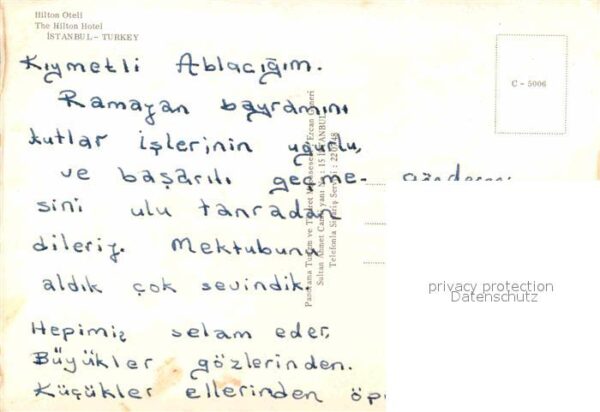 Hilton Oteli
The Hilton Hotel
İSTANBUL - TURKEY
C - 5006
Kıymetli Ablacığım.
Ramazan bayramını
kutlar işlerinin uğurlu,
ve başarılı geçme-
sini ulu tanradan
dileriz. Mektubunu
aldık çok sevindik.
Hepimiz selam eder,
Büyükler gözlerinden.
Küçükler ellerinden öp
Sultan Ahmet
İSTANBUL
Telefonla Sipariş Servisi :
privacy protection
Datenschutz